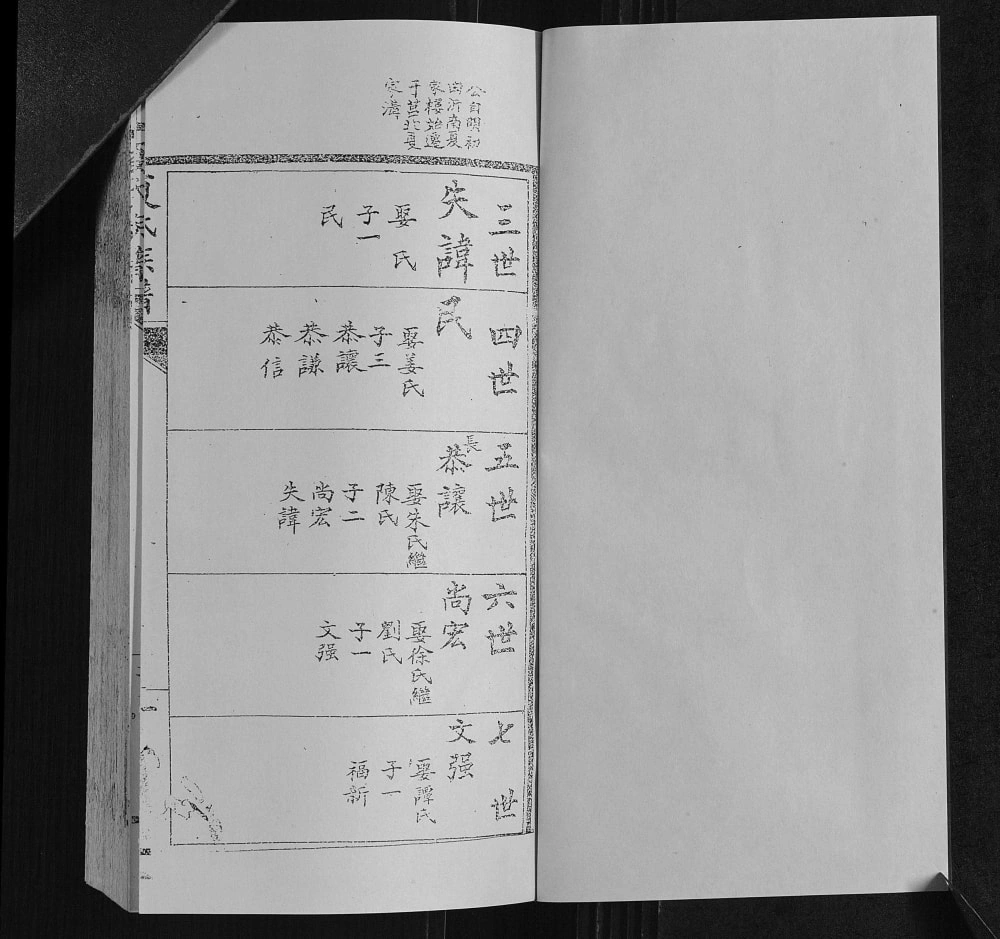 公自明初
由沂南夏
家楼始遷
于莒北夏
家溝
三世
失諱
娶 氏
子一
民
四世
民
娶姜氏
子三
恭讓
恭謙
恭信
五世
長
恭讓
娶朱氏繼
陳氏
子二
尚宏
失諱
六世
尚宏
娶徐氏繼
劉氏
子一
文强
七世
文强
娶譚氏
子一
福新
夏氏族譜